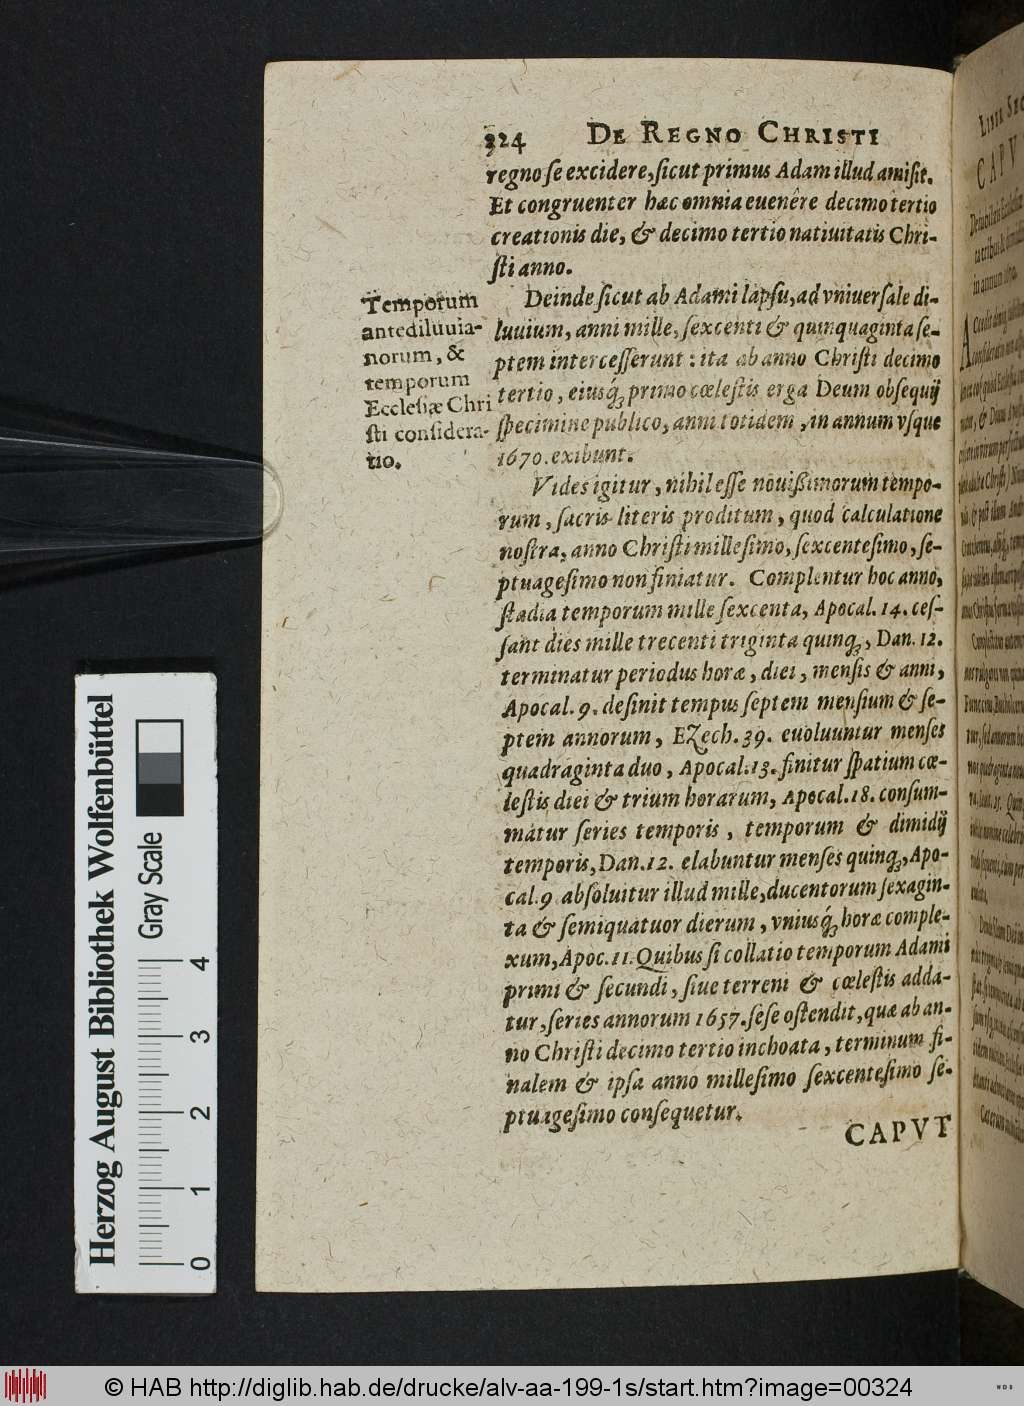 324 DE REGNO CHRISTI
regno se excidere, sicut primus Adam illud amisit.
Et congruenter hæc omnia euenêre decimo tertio
creationis die, & decimo tertio natiuitatis Chri-
sti anno.
Temporum
antediluuia-
norum, &
temporum
Ecclesiæ Chri
sti considera-
tio.
Deinde sicut ab Adami lapsu, ad vniuersale di-
luuium, anni mille, sexcenti & quinquaginta se-
ptem intercesserunt: ita ab anno Christi decimo
tertio, eiusq́ꝫ primo cœlestis erga Deum obsequij
specimine publico, anni totidem, in annum vsque
1670. exibunt.
Vides igitur, nihil esse nouißimorum tempo-
rum, sacris literis proditum, quod calculatione
nostra, anno Christi millesimo, sexcentesimo, se-
ptuagesimo non finiatur. Complentur hoc anno,
stadia temporum mille sexcenta, Apocal. 14. ces-
sant dies mille trecenti triginta quinqꝫ, Dan. 12.
terminatur periodus horæ, diei, mensis & anni,
Apocal. 9. desinit tempus septem mensium & se-
ptem annorum, EZech. 39. euoluuntur menses
quadraginta duo, Apocal. 13. finitur spatium cœ-
lestis diei & trium horarum, Apocal. 18. consum-
mātur series temporis, temporum & dimidij
temporis, Dan. 12. elabuntur menses quinqꝫ, Apo-
cal. 9 absoluitur illud mille, ducentorum sexagin-
ta & semiquatuor dierum, vniusq́ꝫ horæ comple-
xum, Apoc. 11. Quibus si collatio temporum Adami
primi & secundi, siue terreni & cœlestis adda-
tur, series annorum 1657. sese ostendit, quæ ab an-
no Christi decimo tertio inchoata, terminum fi-
nalem & ipsa anno millesimo sexcentesimo se-
ptuagesimo consequetur.
CAPVT
LIBER SEC
CAPV
Herzog August Bibliothek Wolfenbüttel
Gray Scale
0 1 2 3 4
© HAB http://diglib.hab.de/drucke/alv-aa-199-1s/start.htm?image=00324